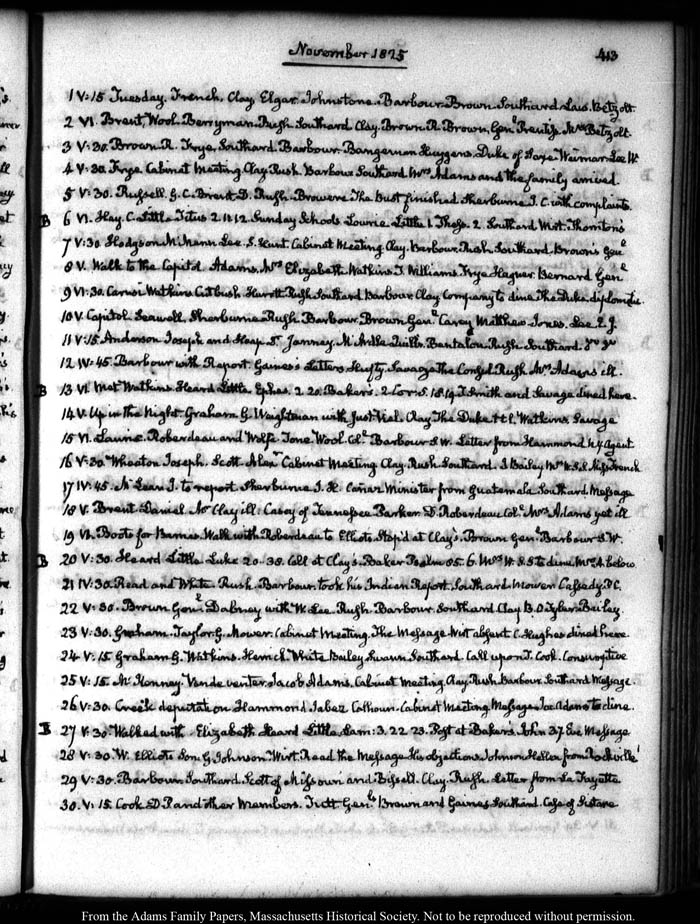 November 1825
413
1 V:15 Tuesday. French. Clay Elgar Johnstone. Barbour. Brown. Southard Law. Betzolt
2 VI. Brent. Wool. Berryman. Rush Southard Clay. Brown R. Brown, Genl. Prentiss Mrs Betzolt
3 V:30. Brown R. Frye. Southard. Barbour. Bangeman Huygens. Duke of Saxe Weimar. Lee W.
4 V:30. Frye. Cabinet Meeting Clay Rush Barbour Southard Mrs Adams and the family arrived.
5 V:30. Russell. G. C. Brent D. Rush. Browere. The Bust finished. Sherburne. J. C. with complaints
B 6 VI. Hay. C. Little. Titus 2. 11. 12. Sunday Schools Lowrie. Little 1. Thess. 2. Southard Wirt. Thornton's
7 V:30 Hodgson. Lee. S. Cabinet Meeting. Clay. Barbour. Rush. Southard Brown's Genl
8 V. Walk to the Capitol Adams. Mrs Elizabeth Watkins. T Williams Frye Hagner. Bernard Genl
9 VI:30. Carusi Watkins Cutbush Rush Southard Barbour. Clay Company to dine The Duke diplomatic
10 V. Capitol Seawell. Sherburne. Rush. Barbour. Brown Genl Carey Matthew Jones. Lee. Z. J.
11 V:15. Anderson. Joseph and Janney. Rush. Southard.
12 IV:45. Barbour with Report. Gaines's Letters. Savage The Consul Rush. Mrs Adams ill.
B 13 VI. Met Watkins. Heard Little. Ephes. 2. 20. Baker's. 2 Cor. 5. 18. 19. T. Smith and Savage dined here.
14 V. Up in the Night. Graham G. Weightman with Clay. The Duke Watkins. Savage
15 VI. Laurie. Roberdeau and Wolfe Tone Wool Coll. Barbour S. W. Letter from Hammond N.Y. Agent
16 V:30. Wheaton Joseph. Scott Alexr Cabinet Meeting Clay. Rush. Southard. J Bailey
17 IV:45. Mc Lean J. to report Sherburne J. H. Cañaz Minister from Guatemala Southard. Message
18 V. Brent Daniel Mr Clay ill. Casey of Tennessee Barker. D. Roberdeau Coll. Mrs Adams yet ill
19 VI. Boots for Barnes. Walk with Roberdeau to Elliots. Stop'd at Clay's. Brown Genl. Barbour S. W.
B 20 V:30. Heard Little. Luke 20. 38. Call at Clay's. Baker Psalm 85. 6. Mrs W. S. S to dine. Mrs A. below
21 IV:30. Read and White. Rush. Barbour. took his Indian Report. Southard Mower Cassedy. P. C.
22 V:30. Brown Genl. Dabney with W. Lee. Rush. Barbour. Southard Clay Bailey
23 V:30. Graham. Taylor G. Mower. Cabinet Meeting. The Message Wirt absent C. Hughes dined here
24 V:15 Graham G. Watkins. Herrick. White Bailey Swann Southard. Call upon J. Cook. Consumptive
25 V:15. Vandeventer. Jacob Adams. Cabinet meeting. Clay. Rush. Barbour. Southard Message.
26 V:30. Creek deputation Hammond. Jabez Calhoun. Cabinet Meeting. Message. Joe Adams to dine.
B 27 V:30. Walked with Elizabeth Heard Little. Lam: 3. 22. 23. Post at Bakers. John 3.7. Eve Message
28 V:30. W. Elliots Son. G. Johnson Wirt. Read the Message. His objections. Johnson from Rockville
29 V:30. Barbour. Southard. Scott of Missouri and Bissell. Clay. Rush. Letter from La Fayette
30. V:15. Cook D. P. and other Members. Genls Brown and Gaines Southard. Case of
From the Adams Family Papers, Massachusetts Historical Society. Not to be reproduced without permission.